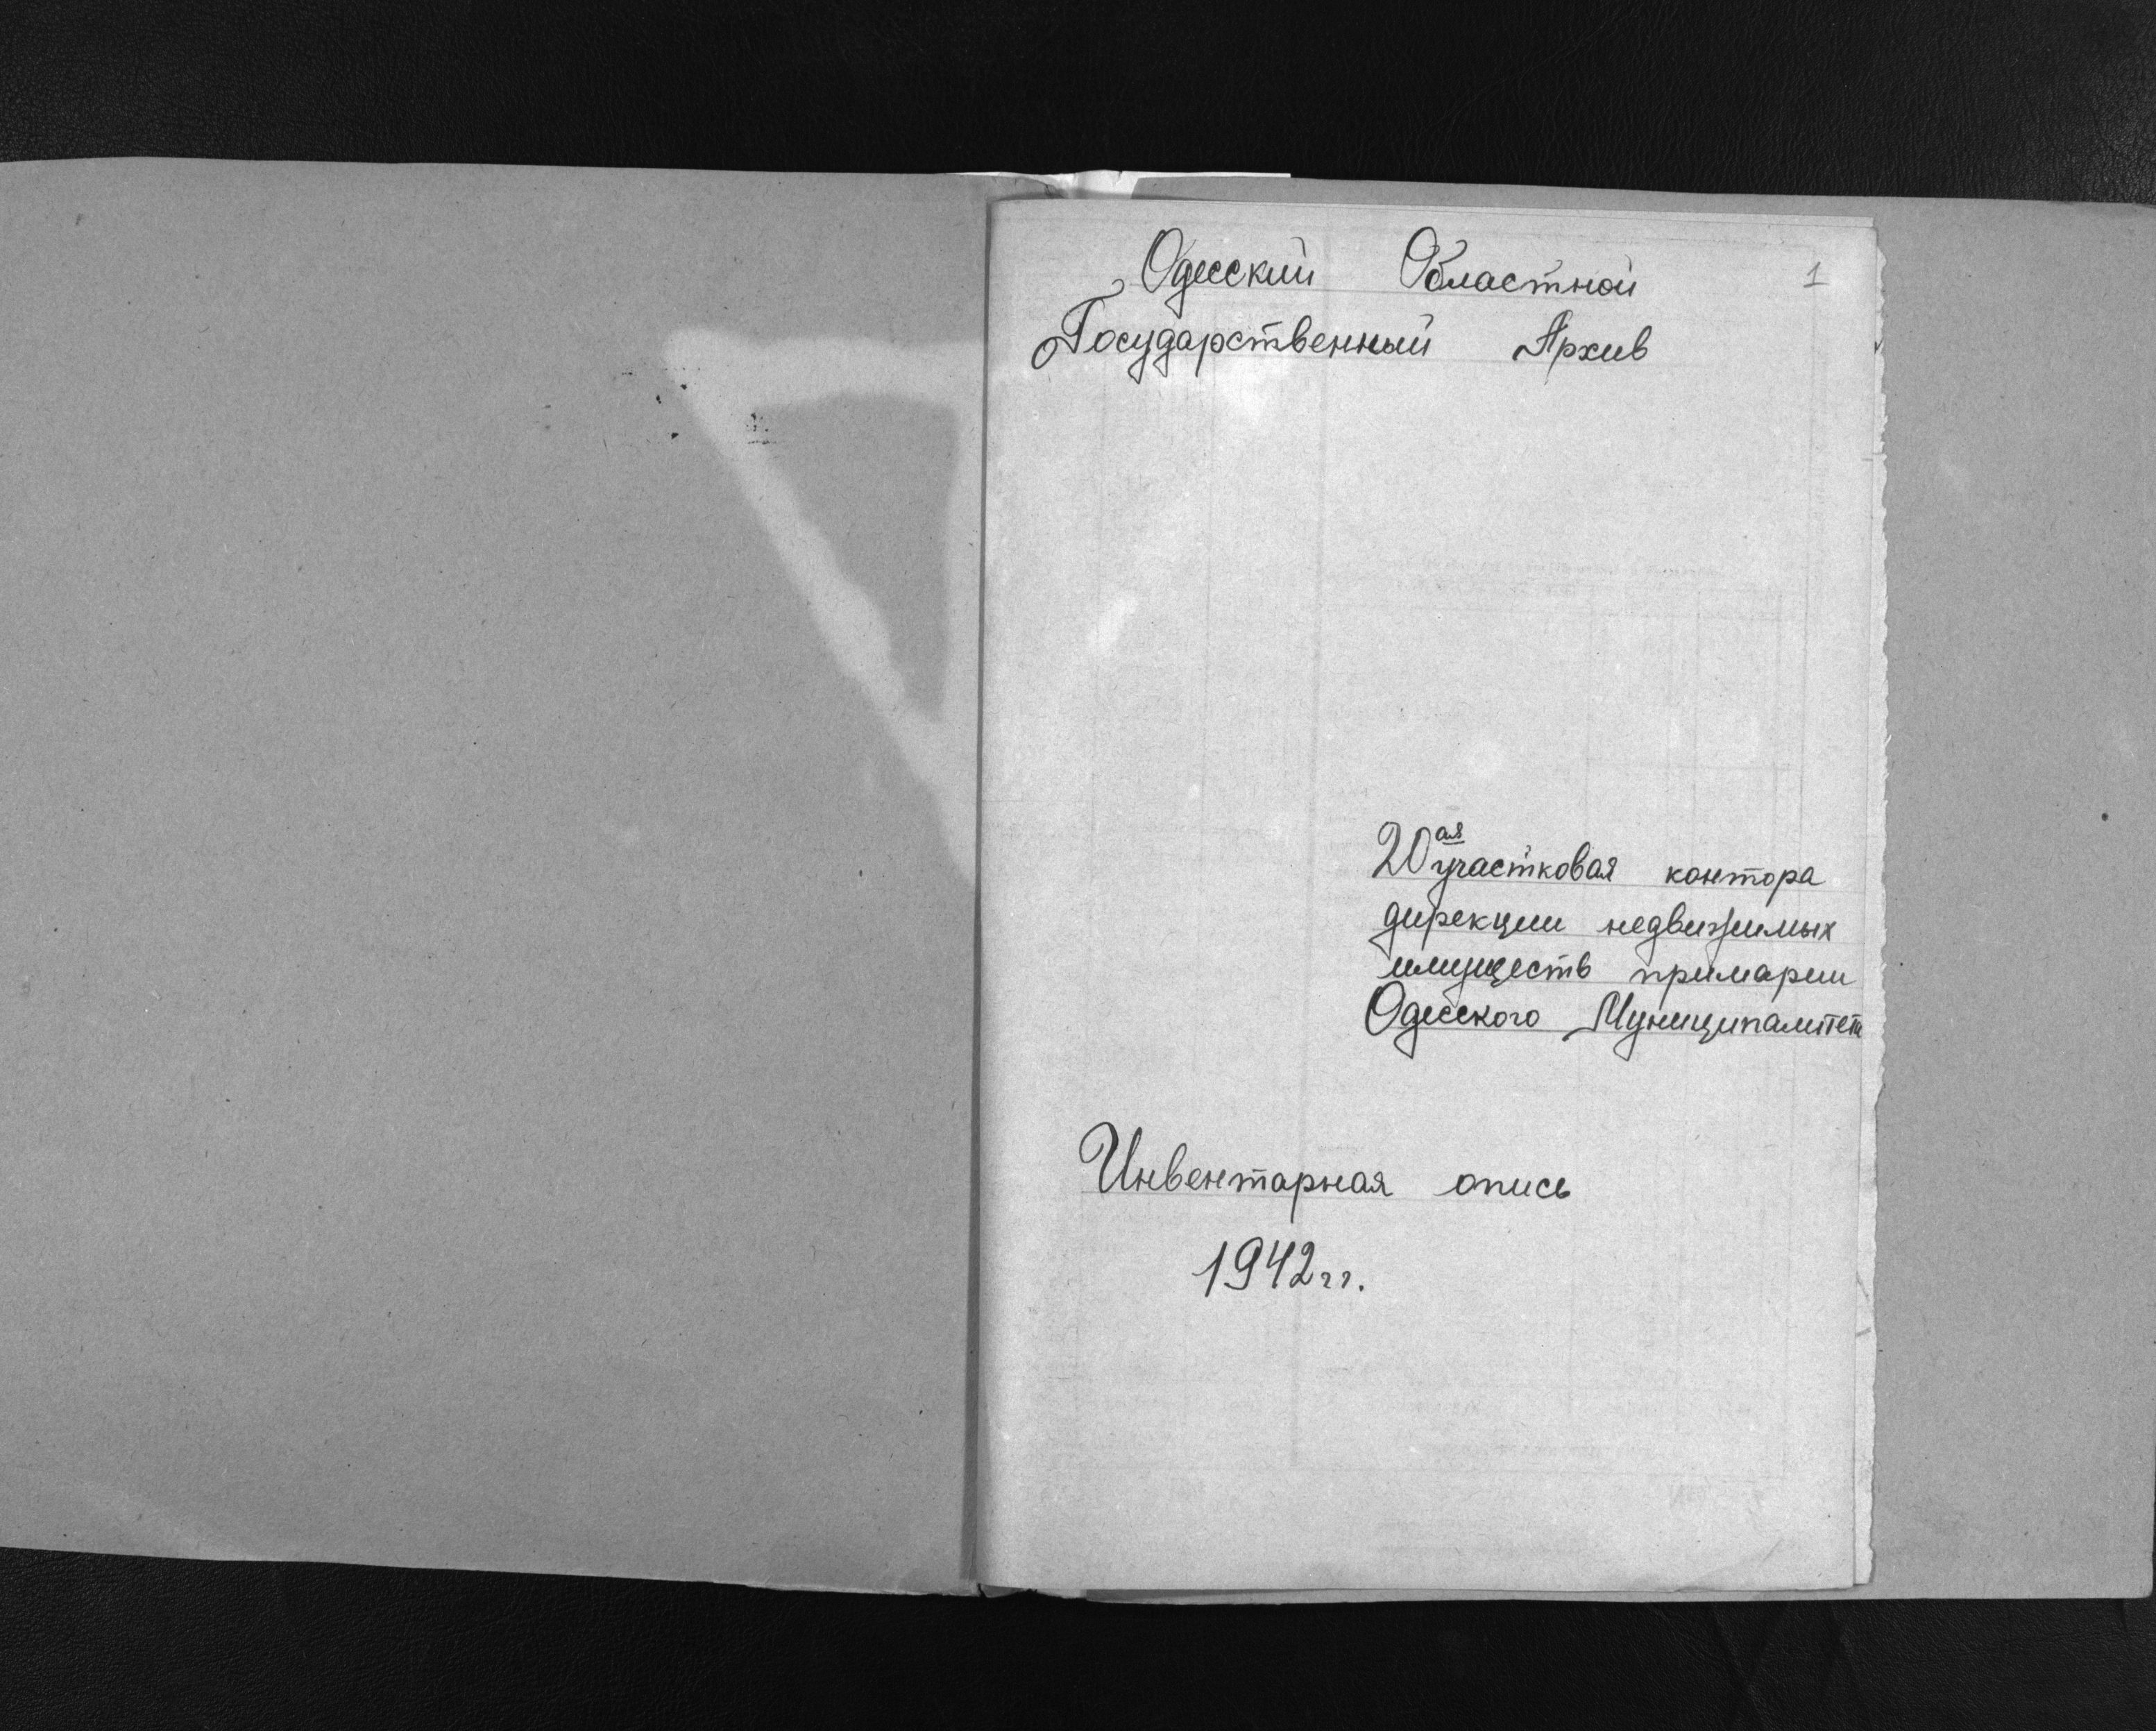 1
Одесский Областной
Государственный Архив
20ая участковая контора
дирекции недвижимых
имуществ примарии
Одесского Муниципалитета
Инвентарная опись
1942 гг.